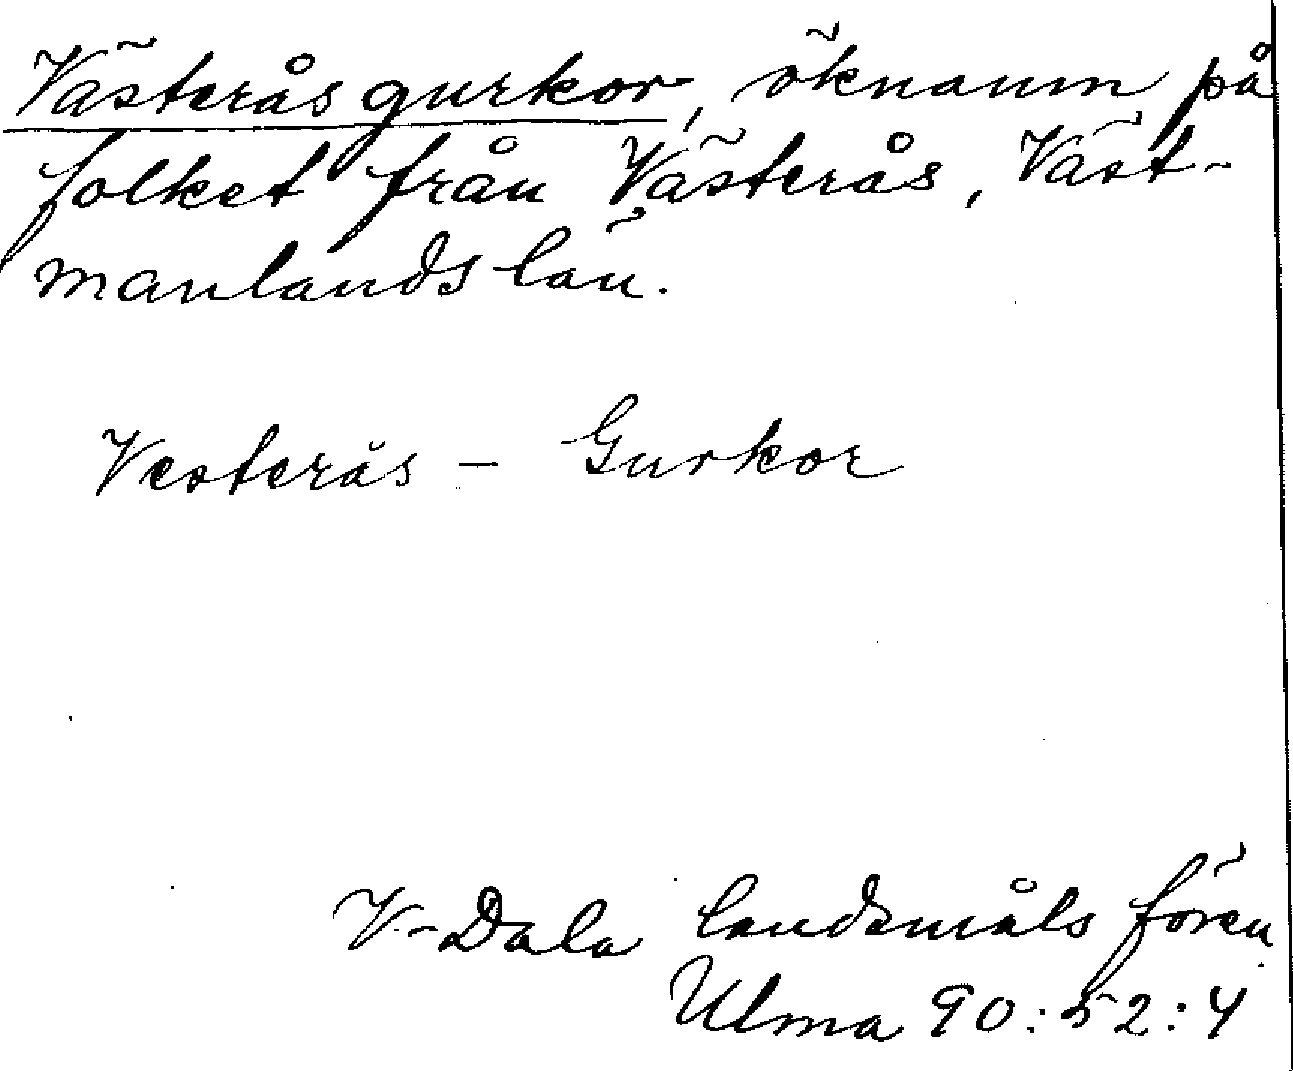 Västeråsgurkor, öknamn på
folket från Västerås, Väst-
manlands län.
Vesterås - Gurkor
V-Dala landsmåls fören.
Ulma 90:52:4